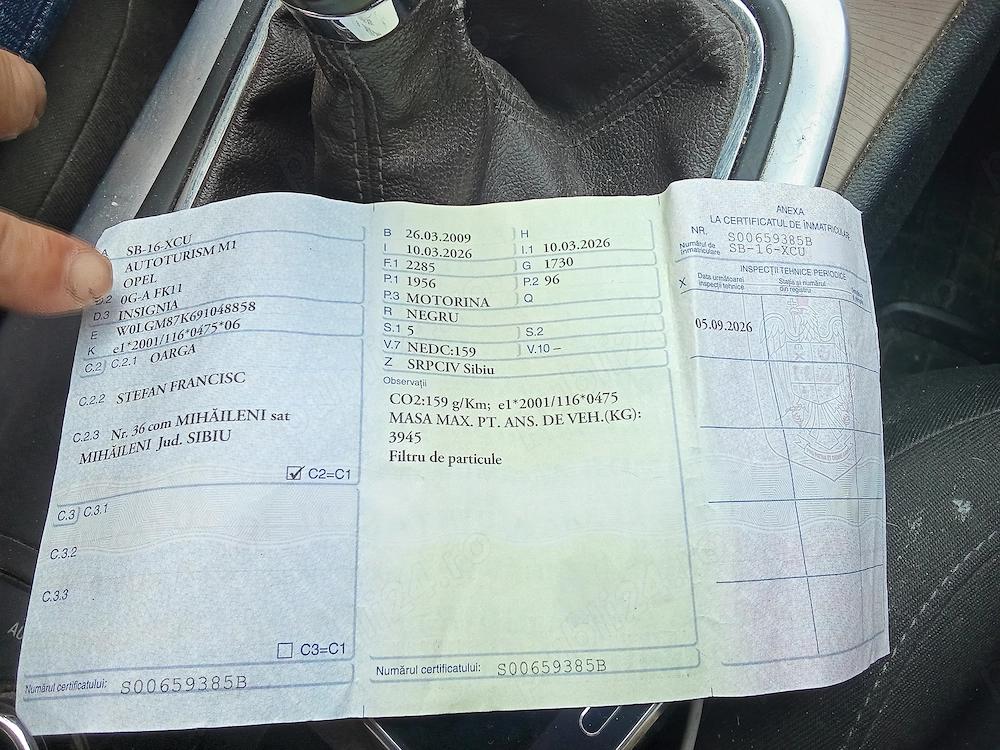 A SB-16-XCU
AUTOTURISM M1
OPEL
D.2 0G-A FK11
D.3 INSIGNIA
E W0LGM87K691048858
K e1*2001/116*0475*06
C.2 C.2.1 OARGA
C.2.2 STEFAN FRANCISC
C.2.3 Nr. 36 com MIHĂILENI sat
MIHĂILENI Jud. SIBIU
C2=C1
C.3 C.3.1
C.3.2
C.3.3
C3=C1
Numărul certificatului: S00659385B
B 26.03.2009 H
I 10.03.2026 I.1 10.03.2026
F.1 2285 G 1730
P.1 1956 P.2 96
P.3 MOTORINA Q
R NEGRU
S.1 5 S.2
V.7 NEDC:159 V.10 –
Z SRPCIV Sibiu
Observații
CO2:159 g/Km; e1*2001/116*0475
MASA MAX. PT. ANS. DE VEH.(KG):
3945
Filtru de particule
Numărul certificatului: S00659385B
ANEXA
LA CERTIFICATUL DE ÎNMATRICULARE
NR. S00659385B
Numărul de
înmatriculare SB-16-XCU
INSPECȚII TEHNICE PERIODICE
X Data următoarei
inspecții tehnice
Stația și numărul
din registru
05.09.2026